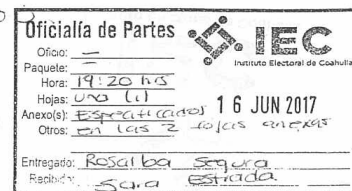 Oficialía de Partes
IEC
Instituto Electoral de Coahuila
Oficio: —
Paquete: —
Hora: 19:20 hrs
Hojas: una (1)
Anexo(s): Especificados
16 JUN 2017
Otros: en las 2 hojas anexas
Entregado: Rosalba Segura
Recibido: Sara Estrada